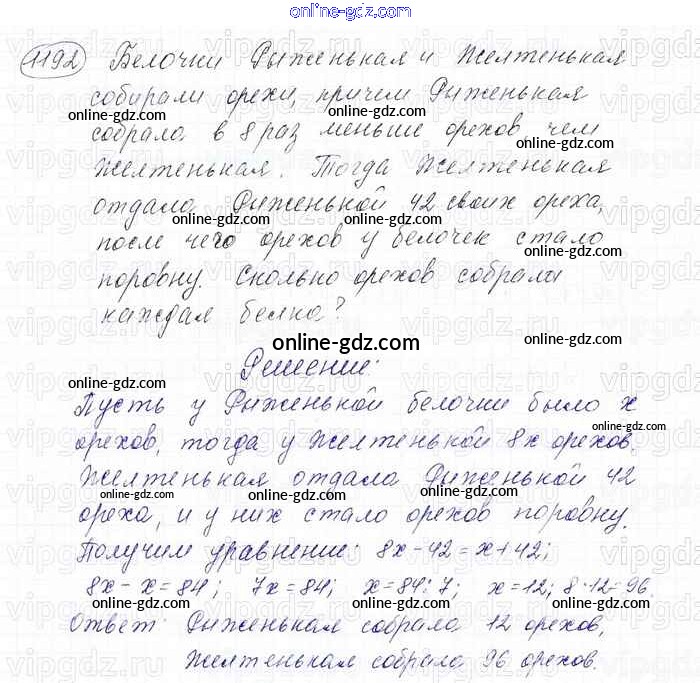 online-gdz.com
1192 Белочки Рыженькая и Желтенькая
собирали орехи, причем Рыженькая
online-gdz.com online-gdz.com
собрала в 8 раз меньше орехов чем
online-gdz.com online-gdz.com
Желтенькая. Тогда Желтенькая
отдала Рыженькой 42 своих ореха,
online-gdz.com online-gdz.com
после чего орехов у белочек стало
поровну. Сколько орехов собрали
online-gdz.com online-gdz.com
каждая белка?
online-gdz.com
Решение:
online-gdz.com online-gdz.com
Пусть у Рыженькой белочки было x
online-gdz.com
орехов, тогда у Желтенькой 8x орехов.
Желтенькая отдала Рыженькой 42
online-gdz.com online-gdz.com
ореха, и у них стало орехов поровну.
Получим уравнение: 8x-42=x+42;
online-gdz.com online-gdz.com
8x-x=84; 7x=84; x=84:7; x=12; 8·12=96.
online-gdz.com online-gdz.com
Ответ: Рыженькая собрала 12 орехов,
Желтенькая собрала 96 орехов.
online-gdz.com online-gdz.com